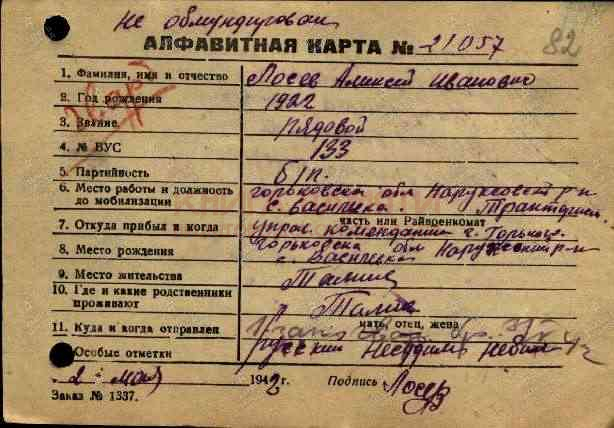 не обмундирован
82
АЛФАВИТНАЯ КАРТА № 21057
1. Фамилия, имя и отчество Лосев Алексей Иванович
2. Год рождения 1922
3. Звание рядовой
4. № ВУС 133
5. Партийность б/п.
6. Место работы и должность до мобилизации горьковская обл Наруксовский р-н
с. Васильевка. Тракторист
7. Откуда прибыл и когда часть или Райвоенкомат
упрол. комендатин г. Горького
8. Место рождения Горьковска обл Наруксовский р-н
с Васильевка
9. Место жительства
10. Где и какие родственники проживают
мать, отец, жена
11. Куда и когда отправлен
Особые отметки русский Несудим
2 мая 1942 г. Подпись Лосев
Заказ № 1337.